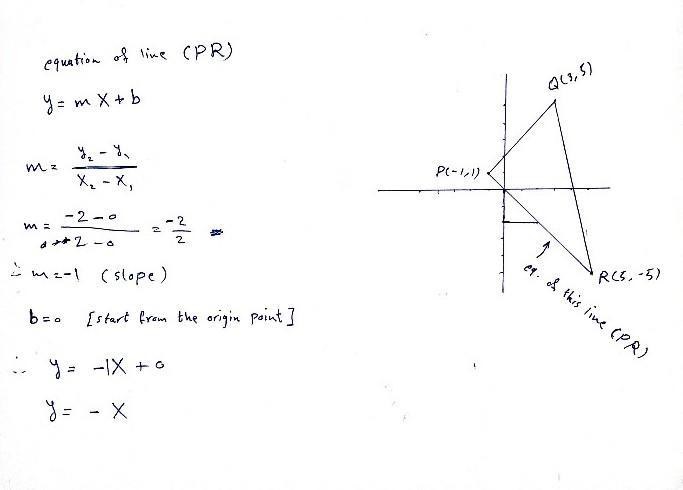 equation of line (PR)
y = m X + b
m = y₂ - y₁ / X₂ - X₁
m = -2 - 0 / 2 - 0 = -2 / 2
∴ m = -1 (slope)
b = 0 [start from the origin point]
∴ y = -1X + 0
y = - X
Q(3,5)
P(-1,1)
R(5,-5)
eq. of this line (PR)